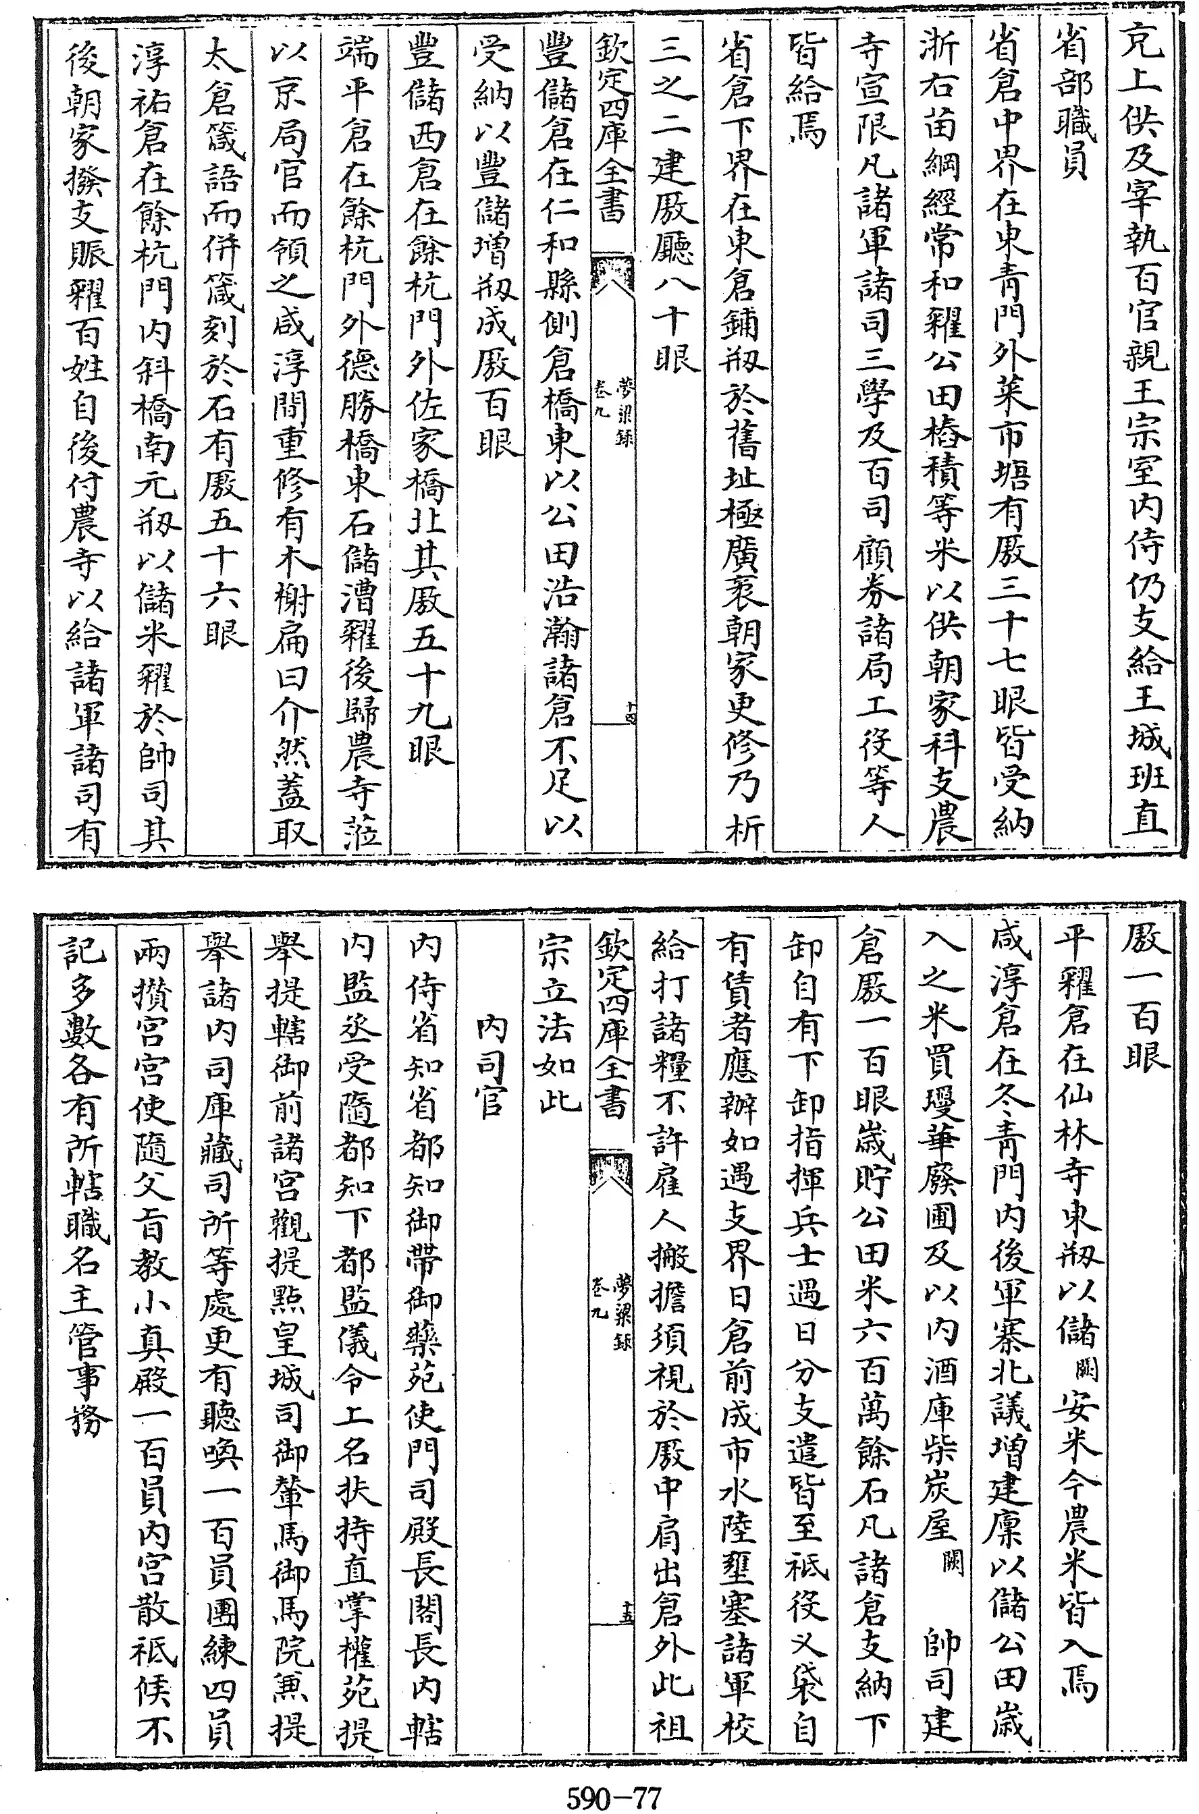 充上供及宰執百官親王宗室内侍仍支給王城班直
省部職員
省倉中界在東青門外菜市塘有厫三十七眼皆受納
浙右苗綱經常和糴公田樁積等米以供朝家科支農
寺宣限凡諸軍諸司三學及百司顧劵諸局工役等人
皆給焉
省倉下界在東倉鋪剏於舊址極廣袤朝家更修乃析
三之二建厫廳八十眼
欽定四庫全書
夢粱録
卷九
十四
豐儲倉在仁和縣側倉橋東以公田浩瀚諸倉不足以
受納以豐儲增剏成厫百眼
豐儲西倉在餘杭門外佐家橋北其厫五十九眼
端平倉在餘杭門外德勝橋東石儲漕糴後歸農寺蒞
以京局官而領之咸淳間重修有木榭扁曰介然蓋取
太倉箴語而併箴刻於石有厫五十六眼
淳祐倉在餘杭門内斜橋南元剏以儲米糴於帥司其
後朝家撥支賑糶百姓自後付農寺以給諸軍諸司有
厫一百眼
平糴倉在仙林寺東剏以儲闕安米今農米皆入焉
咸淳倉在冬青門内後軍寨北議增建廪以儲公田歳
入之米買瓊華廢圃及以内酒庫柴炭屋闕 帥司建
倉厫一百眼歳貯公田米六百萬餘石凡諸倉支納下
卸自有下卸指揮兵士遇日分支遣皆至祗役义袋自
有賃者應辦如遇支界日倉前成市水陸壅塞諸軍校
給打諸糧不許雇人搬擔須視於厫中肩出倉外此祖
欽定四庫全書
夢粱録
卷九
十五
宗立法如此
内司官
内侍省知省都知御帶御藥苑使門司殿長閣長内轄
内監丞受隨都知下都監儀令上名扶持直掌權苑提
舉提轄御前諸宮觀提點皇城司御輦馬御馬院兼提
舉諸内司庫藏司所等處更有聽喚一百員團練四員
兩攢宮宮使隨父旨教小真殿一百員内宮散祗候不
記多數各有所轄職名主管事務
590-77